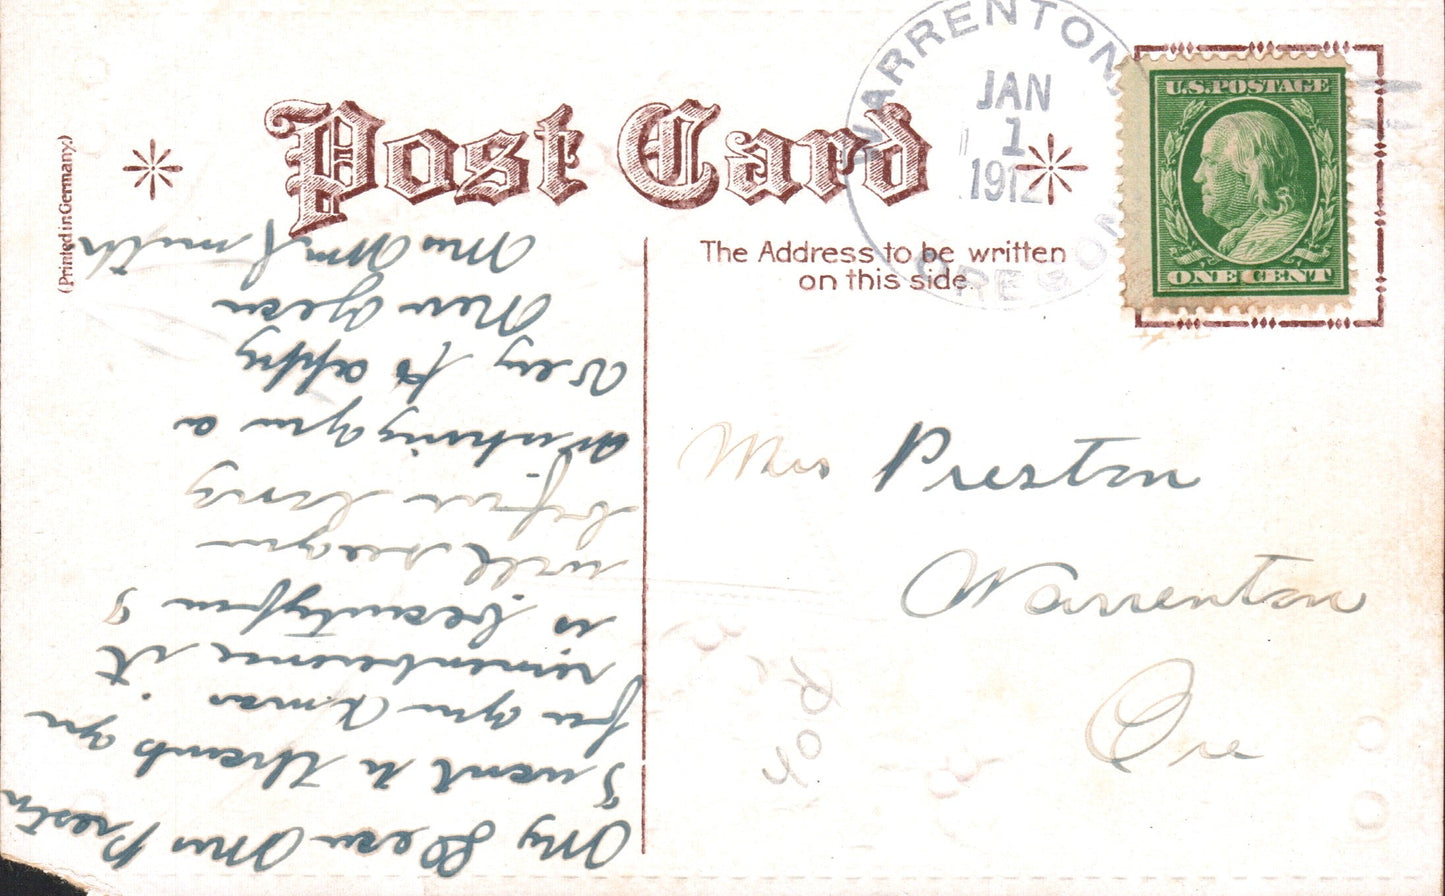 Post Card
(Printed in Germany.)
WARRENTON,
JAN
1
1912
OREGON
U.S. POSTAGE
ONE CENT
The Address to be written
on this side.
Mrs Preston
Warrenton
Ore
My Dear Mrs Preston
I want to thank you
for your Xmas
rememberence it
is beautyful I
will see you
before long
Wishing you a
Very Happy
New Year
Mrs Wm Smith